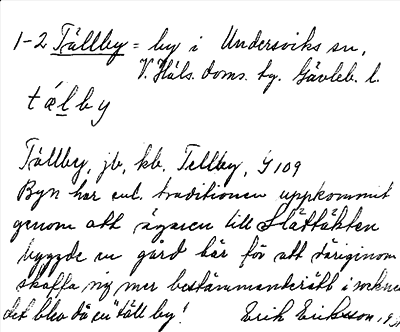 1-2 Tällby = by i Undersviks sn,
V. Häls. doms. tg. Gävleb. l.
tälby
Tällby, jb, kb. Tellby, G 109
Byn har enl. traditionen uppkommit
genom att ägaren till Slättäkten
byggde en gård här för att däriginom
skaffa sig mer bestämmanderätt i socknen
det blev då en "täll by"!  Erik Eriksson,